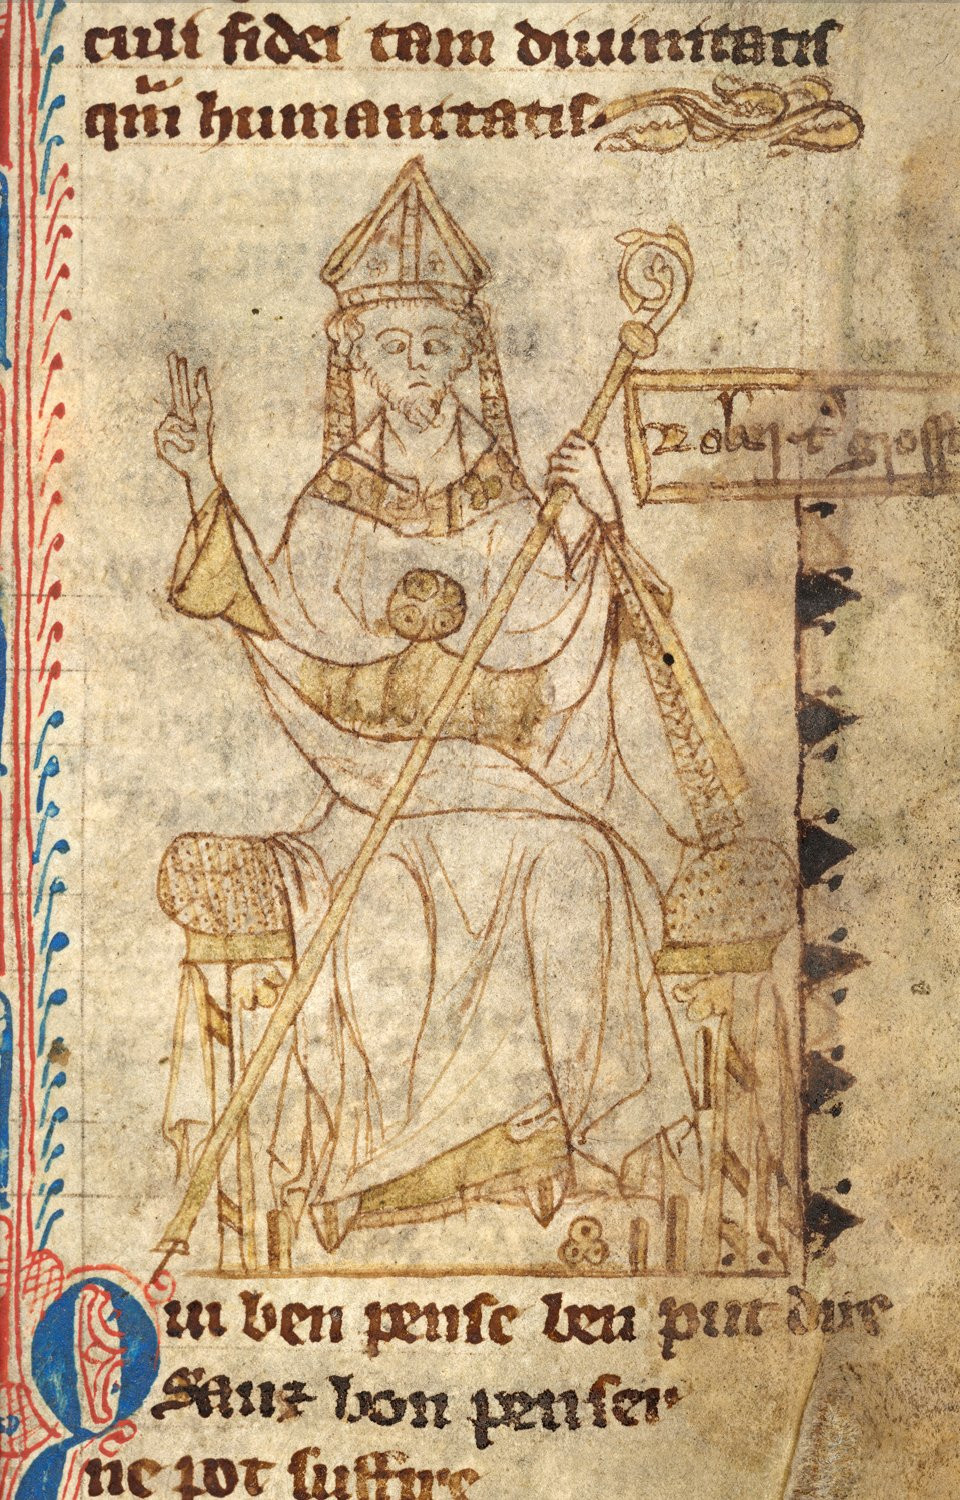 culi fidei tam diuinitatis
qm̄ humanitatis.
Rob't' grosse
Qui ben pense ben put dire
Sanz bon penser
ne pot suffire